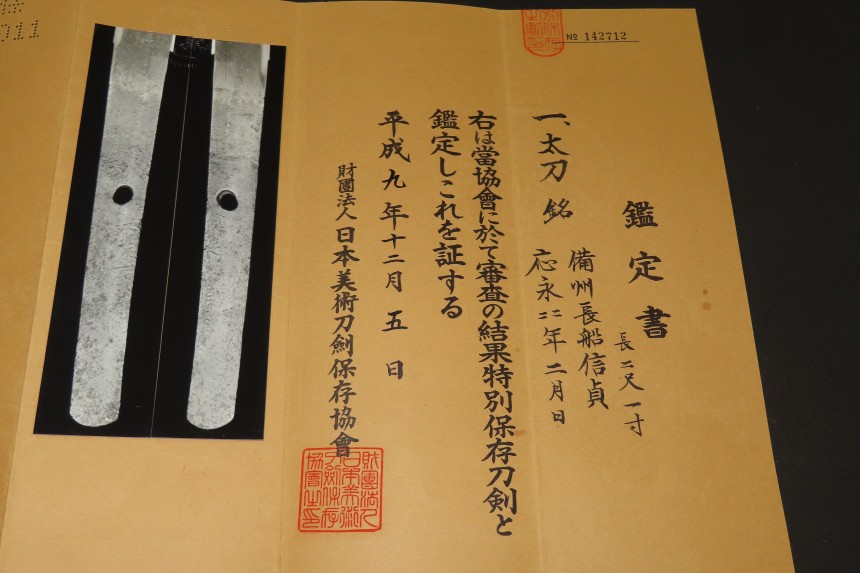 № 142712
鑑定書
長二尺一寸
備州長船信貞
一、太刀 銘
応永二二年二月日
右は當協會に於て審査の結果特別保存刀剣と
鑑定しこれを証する
平成九年十二月五日
財團法人日本美術刀劍保存協會
011